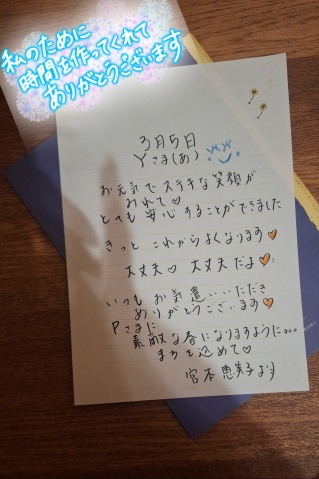 私のために
時間を作ってくれて
ありがとうございます
3月5日
Yさま(あ)
お元気でステキな笑顔が
みれて♡
とても安心することができました
きっとこれからよくなります♡
大丈夫♡ 大丈夫だよ♡
いつもお気遣いいただき
ありがとうございます♡
Pさまに
素敵な春になりますように...
まごを込めて♡
宮本恵美子より